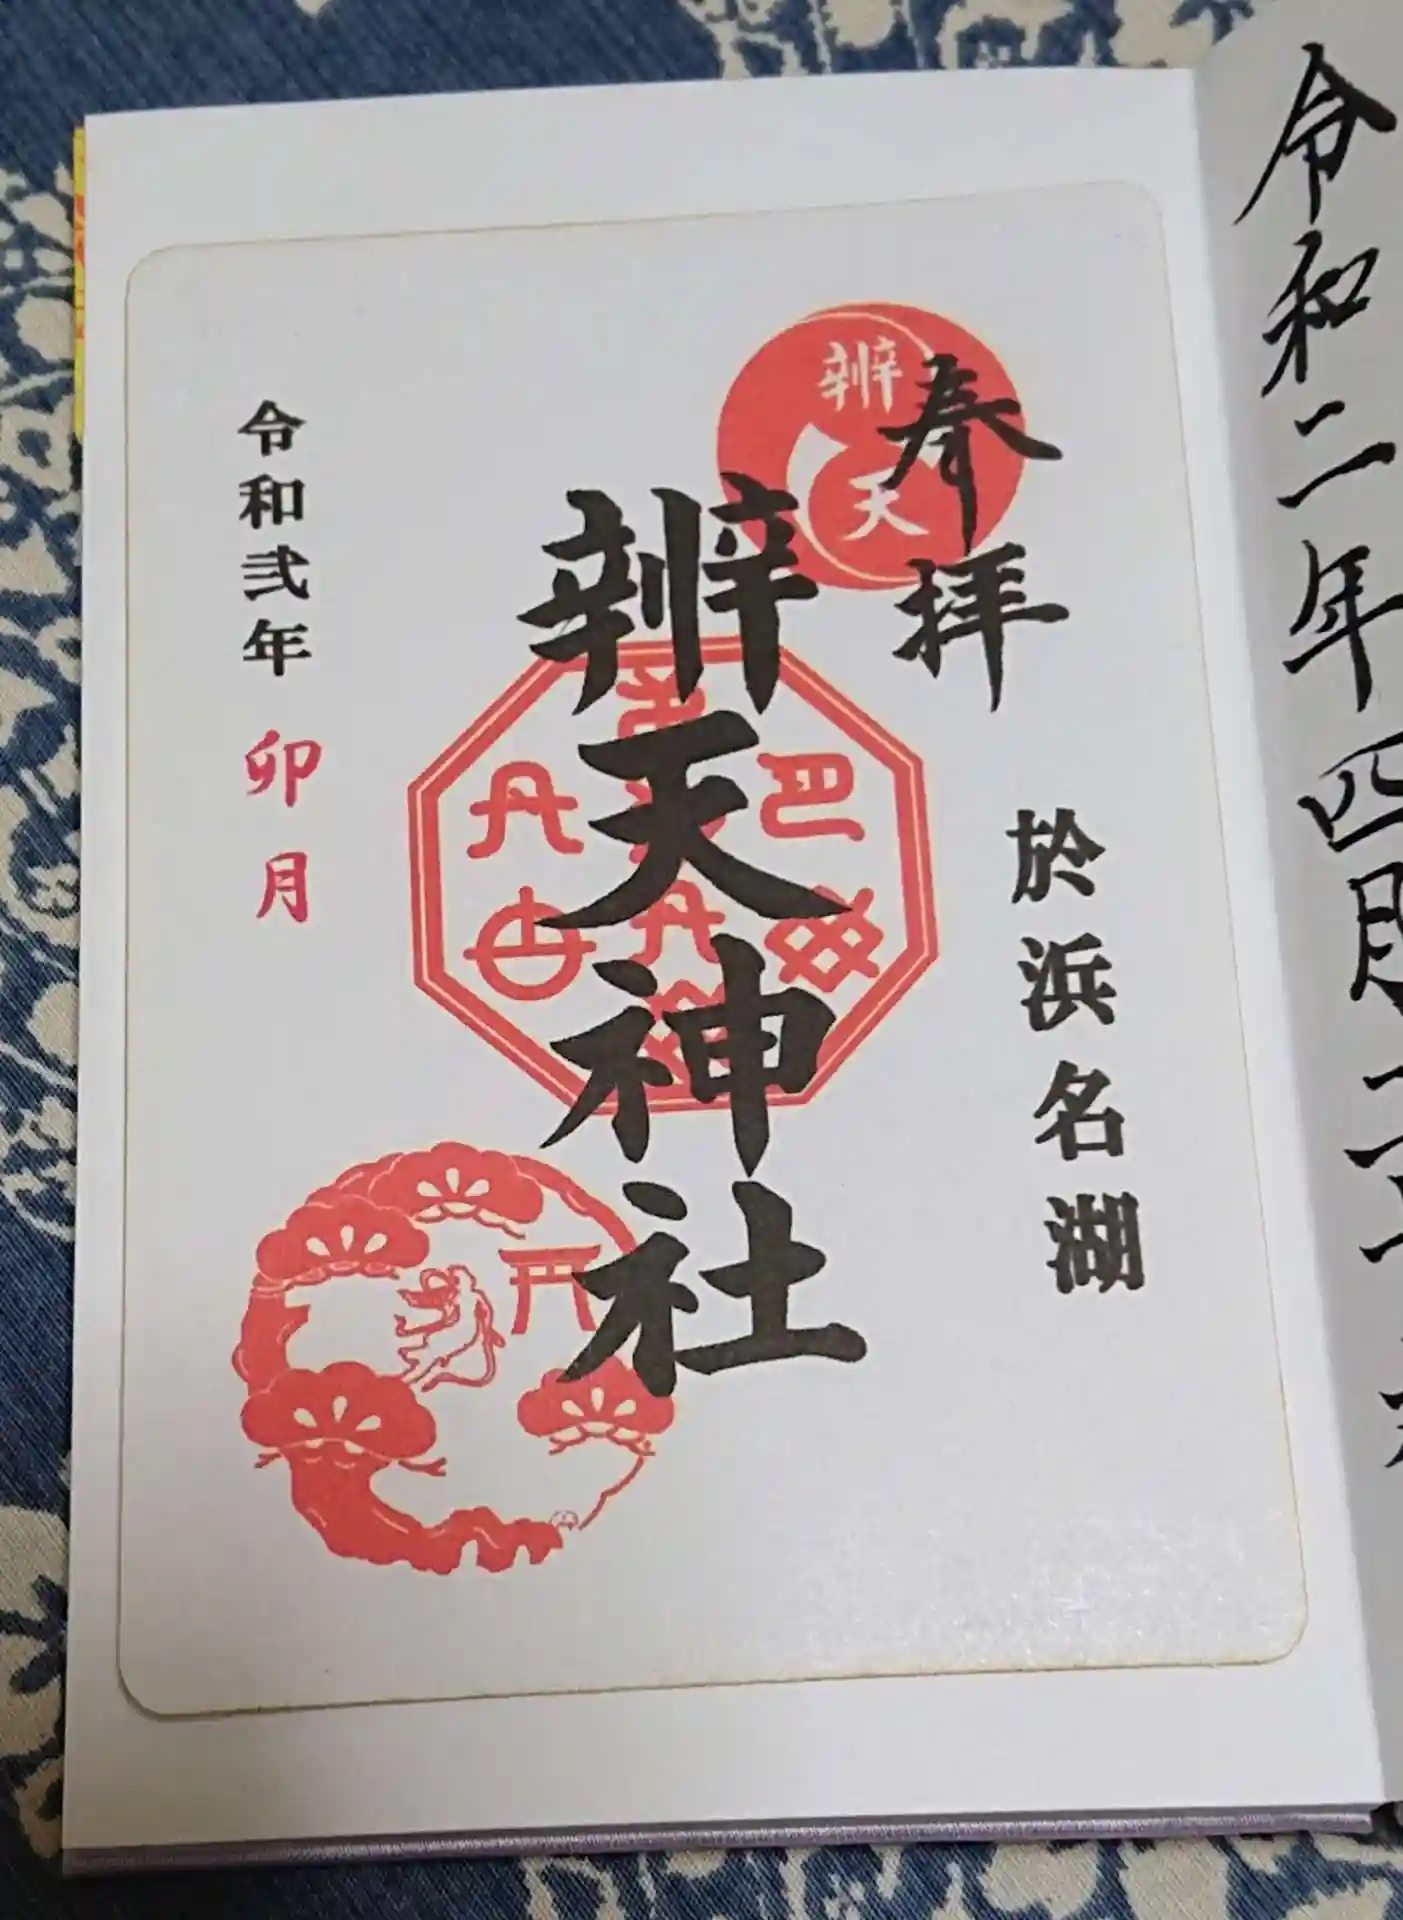 令和二年四月二十
奉拝
於浜名湖
辨天
辨天神社
令和弐年 卯月